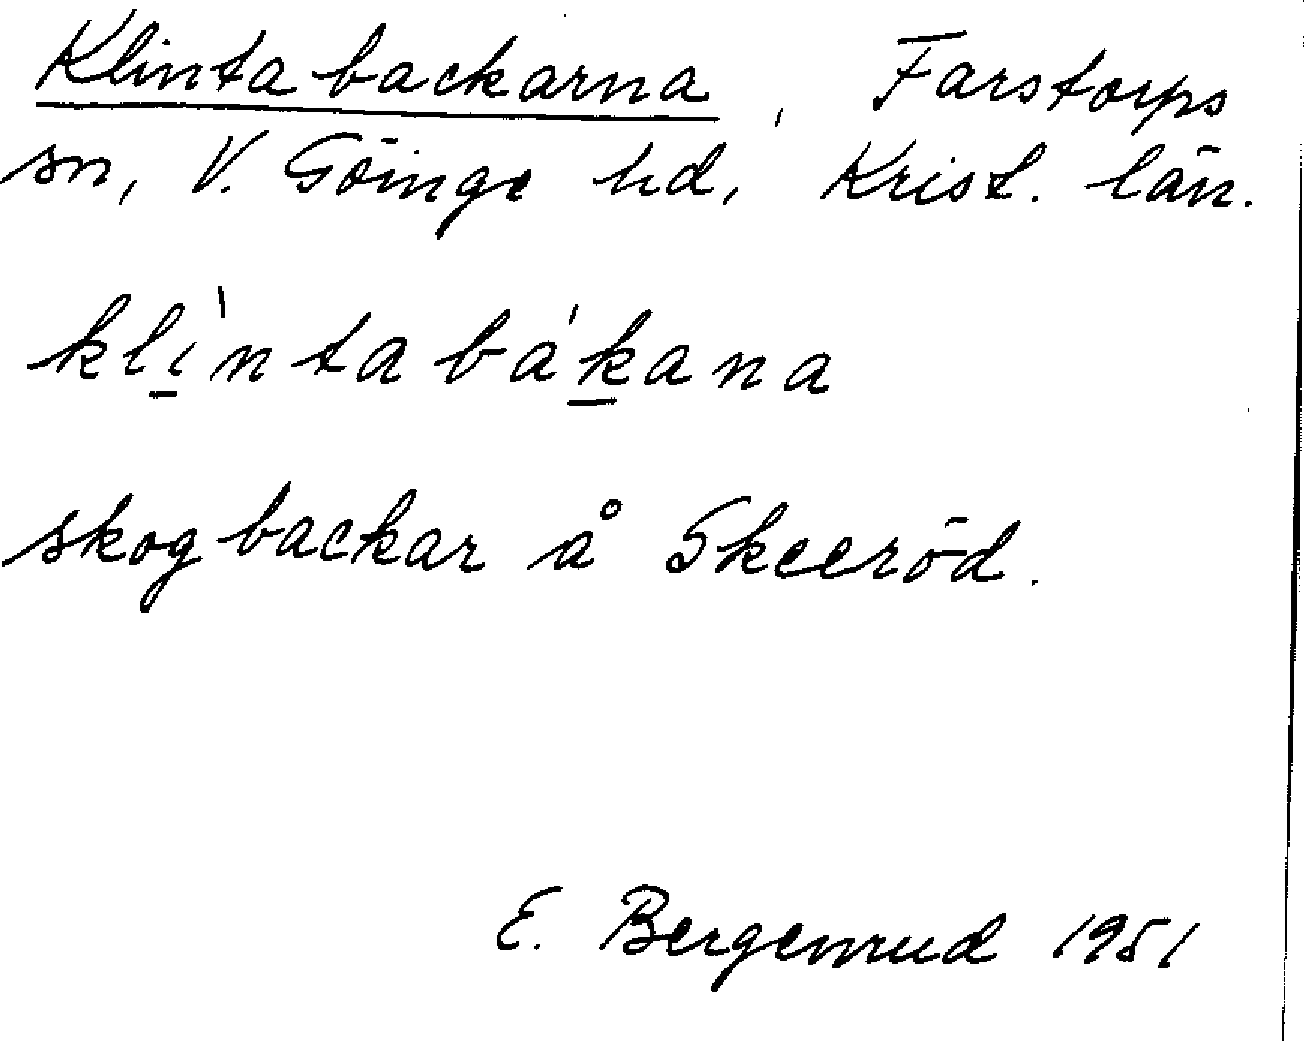 Klintabackarna, Farstorps
sn, V. Göinge hd, Krist. län.
klì̲ntabák̲ana
skogbackar å Skeeröd.
E. Bergenrud 1951